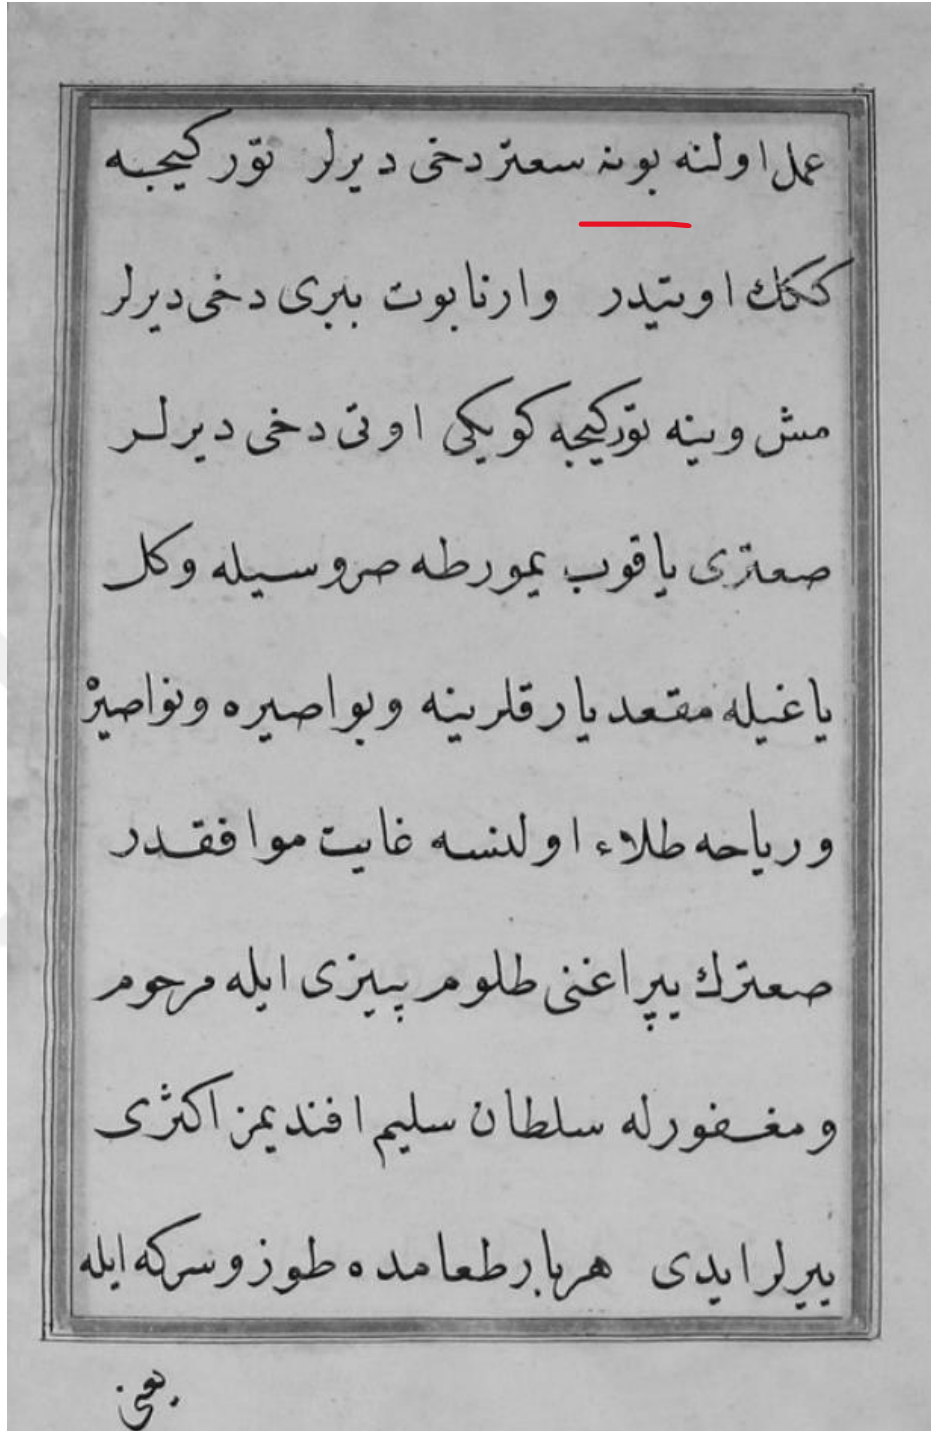 عمل اولنه بونه سعتر دخی دیرلر تورکیجه
ككك اوتیدر وارنابوت بیری دخی دیرلر
مش وینه تورکیجه کویكی اوتی دخی دیرلر
صعتری یاقوب یمورطه صروسیله وکل
یاغیله مقعد یارقلرینه وبواصیره ونواصیره
وریاحه طلاء اولنسه غایت موافقدر
صعترك یپراغنی طلوم پینری ایله مرحوم
ومغفورله سلطان سلیم افندیمز اکثری
ییرلر ایدی هربار طعامده طوز وسرکه ایله